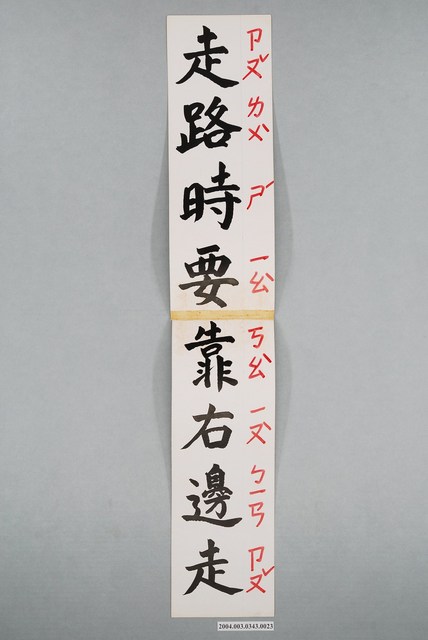 走路時要靠右邊走
ㄗㄡˇ ㄌㄨˋ ㄕˊ ㄧㄠˋ ㄎㄠˋ ㄧㄡˋ ㄅㄧㄢ ㄗㄡˇ
2004.003.0343.0023